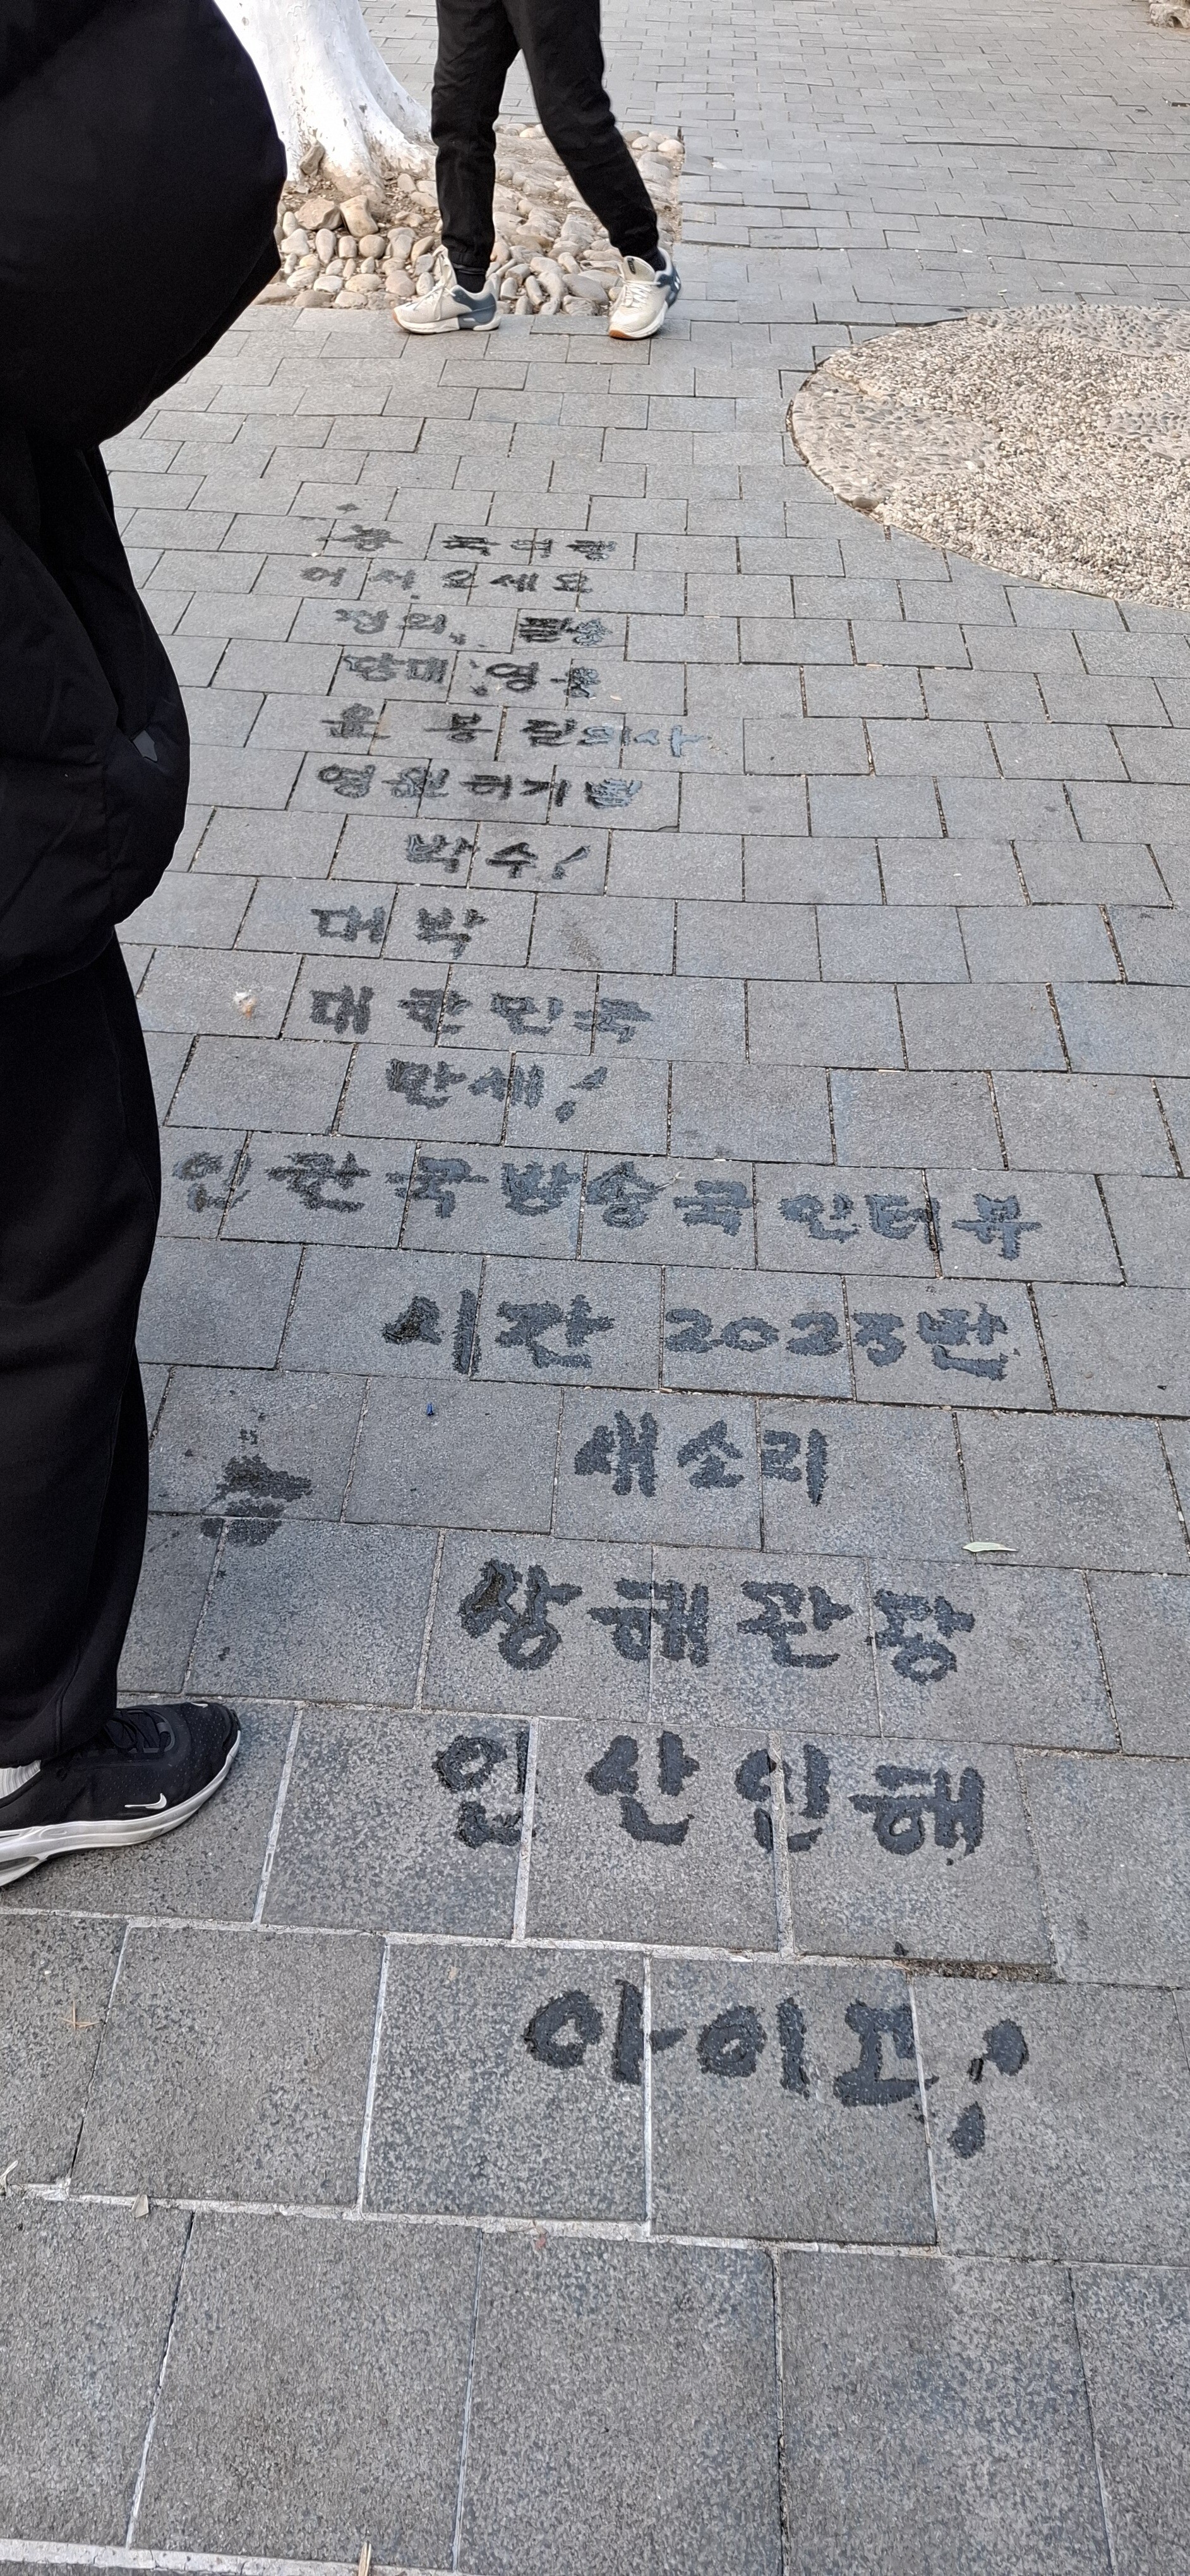 국여행
어서오세요
정의, 필승
당대 영웅
윤봉길의사
영원히기념
박수!
대박
대한민국
만세!
인한국방송국인터뷰
시간 2023년
새소리
상해관당
인산인해
아이고!